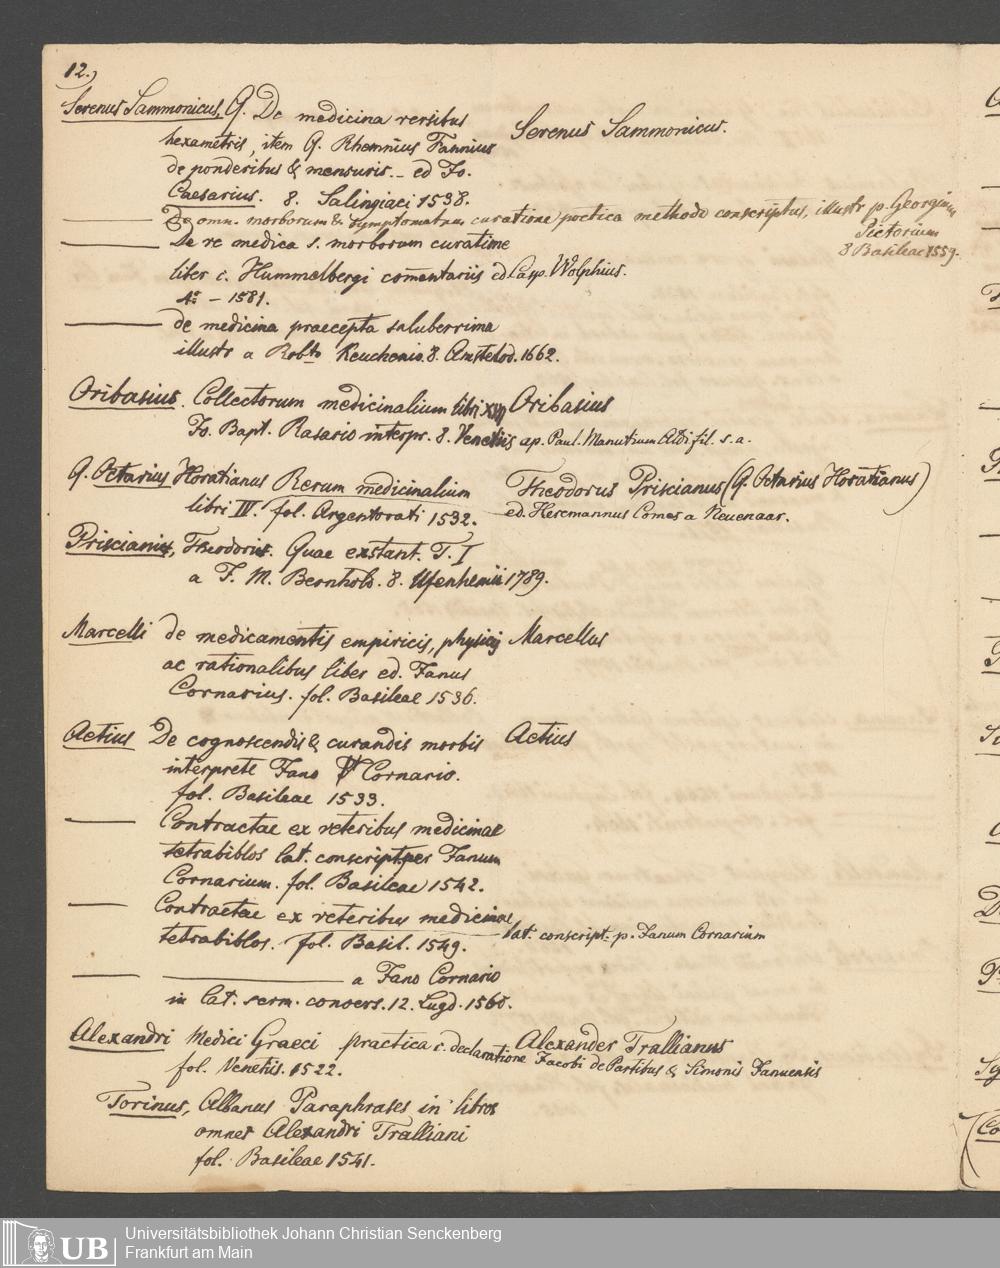 12.)
Serenus Sammonicus, Q. De medicina versibus
hexametris, item Q. Rhemnius Fannius
de ponderibus & mensuris. – ed Jo.
Caesarius. 8. Salingiaci 1538.
Serenus Sammonicus.
De omn. morborum & symptomatum curatione poetica methodo conscriptus, illustr p. Georgium
Pictorium
8 Basileae 1559.
De re medica s. morborum curatione
liber c. Hummelbergi comentariis ed. Casp. Wolphius.
4º – 1581.
de medicina praecepta saluberrima
illustr a Robto Keuchenio. 8. Amstelod. 1662.
Oribasius. Collectorum medicinalium libri XVII Oribasius
Jo. Bapt. Rasario interpr. 8. Venetiis ap. Paul. Manutium Aldi fil. s. a.
Q. Octarius Horatianus Rerum medicinalium
libri IV. fol. Argentorati 1532.
Theodorus Priscianus (Q. Octarius Horatianus)
ed. Heremannus Comes a Neuenaar.
Priscianus, Theodorus. Quae exstant. T. I
a J. M. Bernhold. 8. Ufenhemii 1789.
Marcelli de medicamentis empiricis, physicis Marcellus
ac rationalibus liber ed. Janus
Cornarius. fol. Basileae 1536.
Aetius De cognoscendis & curandis morbis Aetius
interprete Jano Cornario.
fol. Basileae 1533.
Contractae ex veteribus medicinae
tetrabiblos lat. conscript. per Janum
Cornarium. fol. Basileae 1542.
Contractae ex veteribus medicinae
tetrabiblos. fol. Basil. 1549. lat. conscript. p. Janum Cornarium
a Jano Cornario
in lat. serm. convers. 12. Lugd. 1560.
Alexandri Medici Graeci practica c. declaratione Jacobi de Partibus & Simonis Januensis
fol. Venetiis. 1522.
Alexander Trallianus
Torinus, Albanus Paraphrases in libros
omnes Alexandri Tralliani
fol. Basileae 1541.
UB
Universitätsbibliothek Johann Christian Senckenberg
Frankfurt am Main